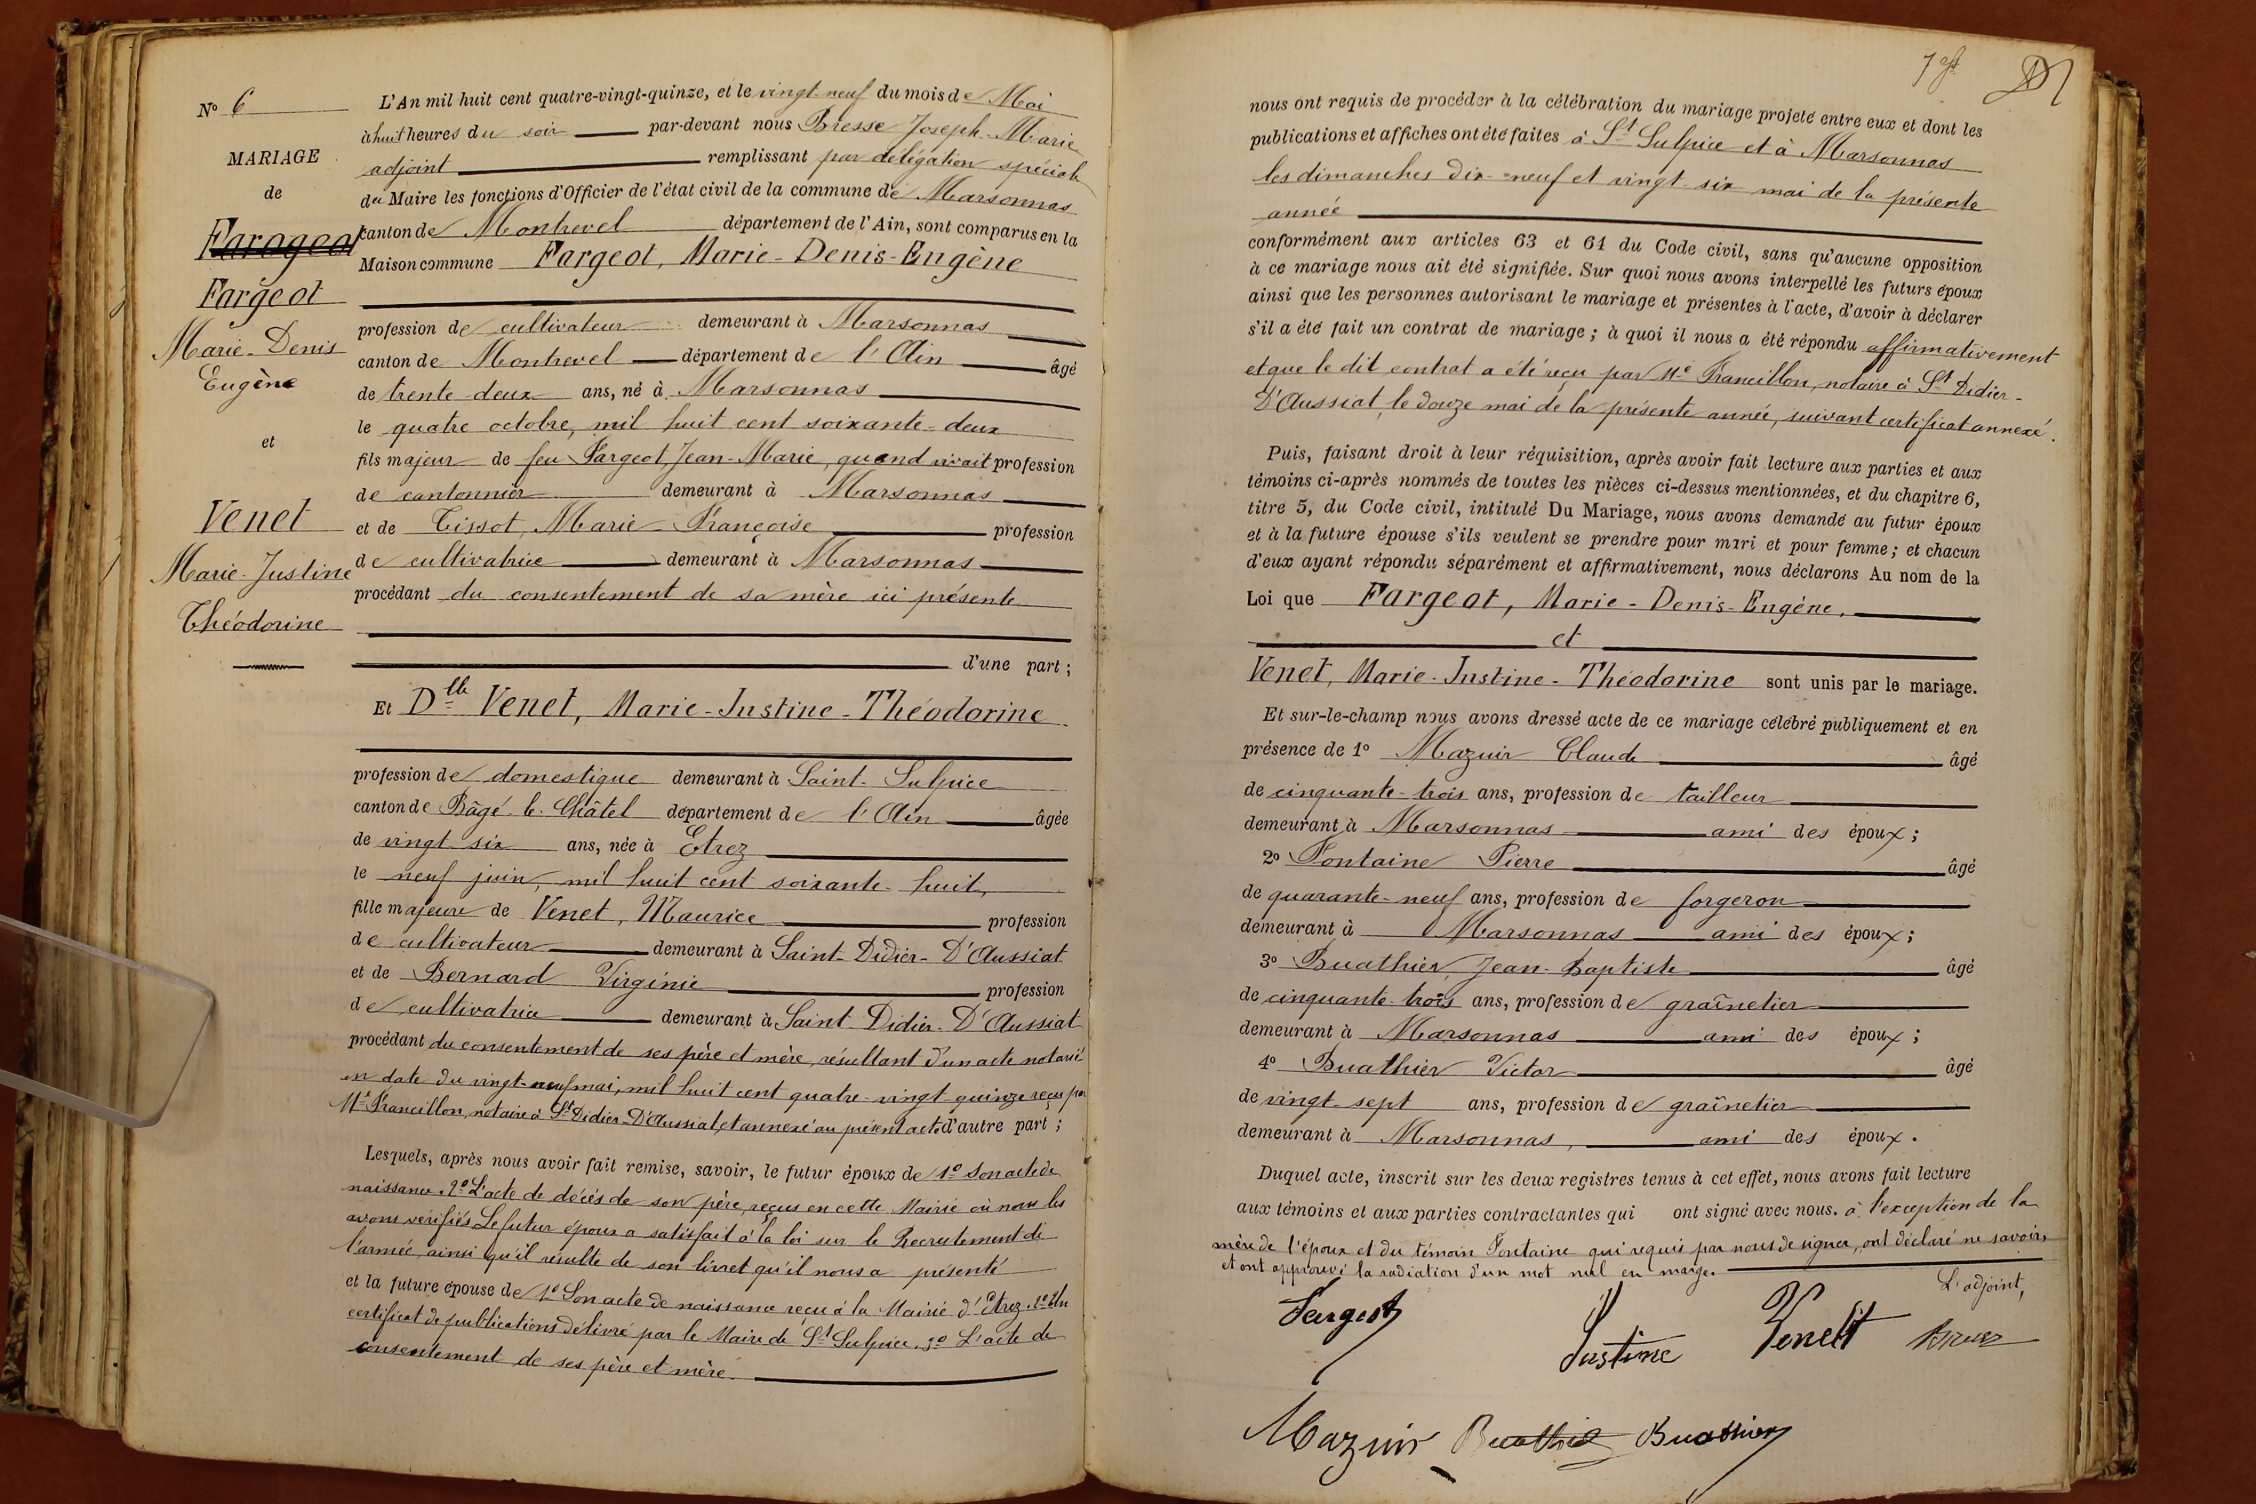 N° 6
MARIAGE
de
Farageot
Fargeot
Marie-Denis
Eugène
et
Venet
Marie-Justine
Théodorine
L'An mil huit cent quatre-vingt-quinze, et le vingt-neuf du mois de Mai
à huit heures du soir par-devant nous Bresse Joseph-Marie
adjoint remplissant par délégation spéciale
du Maire les fonctions d'Officier de l'état civil de la commune de Marsonnas
canton de Montrevel département de l'Ain, sont comparus en la
Maison commune Fargeot, Marie-Denis-Eugène
profession de cultivateur demeurant à Marsonnas
canton de Montrevel département de l'Ain âgé
de trente-deux ans, né à Marsonnas
le quatre octobre, mil huit cent soixante-deux
fils majeur de feu Fargeot, Jean-Marie, quand vivait profession
de cantonnier demeurant à Marsonnas
et de Tissot, Marie-Françoise profession
de cultivatrice demeurant à Marsonnas
procédant du consentement de sa mère ici présente
d'une part ;
Et Dlle Venet, Marie-Justine-Théodorine
profession de domestique demeurant à Saint-Sulpice
canton de Bâgé-le-Châtel département de l'Ain âgée
de vingt-six ans, née à Etrez
le neuf juin, mil huit cent soixante-huit,
fille majeure de Venet, Maurice profession
de cultivateur demeurant à Saint-Didier-D'Aussiat
et de Bernard Virginie profession
de cultivatrice demeurant à Saint-Didier-D'Aussiat
procédant du consentement de ses père et mère, résultant d'un acte notarié
en date du vingt-neuf mai, mil huit cent quatre-vingt-quinze reçu par
Me Francillon, notaire à St Didier-D'Aussiat, et annexé au présent acte d'autre part ;
Lesquels, après nous avoir fait remise, savoir, le futur époux de 1° Son acte de
naissance. 2° L'acte de décès de son père, reçus en cette Mairie où nous les
avons vérifiés. Le futur époux a satisfait à la loi sur le Recrutement de
l'armée, ainsi qu'il résulte de son livret qu'il nous a présenté
et la future épouse de 1° Son acte de naissance reçu à la Mairie d'Etrez. 2° Un
certificat de publications délivré par le Maire de St Sulpice. 3° L'acte de
consentement de ses père et mère.
7 ft
nous ont requis de procéder à la célébration du mariage projeté entre eux et dont les
publications et affiches ont été faites à St Sulpice et à Marsonnas
les dimanches dix-neuf et vingt-six mai de la présente
année
conformément aux articles 63 et 64 du Code civil, sans qu'aucune opposition
à ce mariage nous ait été signifiée. Sur quoi nous avons interpellé les futurs époux
ainsi que les personnes autorisant le mariage et présentes à l'acte, d'avoir à déclarer
s'il a été fait un contrat de mariage ; à quoi il nous a été répondu affirmativement
et que le dit contrat a été reçu par Me Francillon, notaire à St Didier-
D'Aussiat, le douze mai de la présente année, suivant certificat annexé.
Puis, faisant droit à leur réquisition, après avoir fait lecture aux parties et aux
témoins ci-après nommés de toutes les pièces ci-dessus mentionnées, et du chapitre 6,
titre 5, du Code civil, intitulé Du Mariage, nous avons demandé au futur époux
et à la future épouse s'ils veulent se prendre pour mari et pour femme ; et chacun
d'eux ayant répondu séparément et affirmativement, nous déclarons Au nom de la
Loi que Fargeot, Marie-Denis-Eugène,
et
Venet, Marie-Justine-Théodorine sont unis par le mariage.
Et sur-le-champ nous avons dressé acte de ce mariage célébré publiquement et en
présence de 1° Mazuir Claude âgé
de cinquante-trois ans, profession de tailleur
demeurant à Marsonnas ami des époux ;
2° Fontaine Pierre âgé
de quarante-neuf ans, profession de forgeron
demeurant à Marsonnas ami des époux ;
3° Buathier, Jean-Baptiste âgé
de cinquante-trois ans, profession de graînetier
demeurant à Marsonnas ami des époux ;
4° Buathier Victor âgé
de vingt-sept ans, profession de graînetier
demeurant à Marsonnas, ami des époux.
Duquel acte, inscrit sur les deux registres tenus à cet effet, nous avons fait lecture
aux témoins et aux parties contractantes qui ont signé avec nous. à l'exception de la
mère de l'époux et du témoin Fontaine qui requis par nous de signer, ont déclaré ne savoir,
et ont approuvé la radiation d'un mot nul en marge.
L'adjoint,
Fargeot
Justine Venet Bresse
Mazuir Buathier Buathier